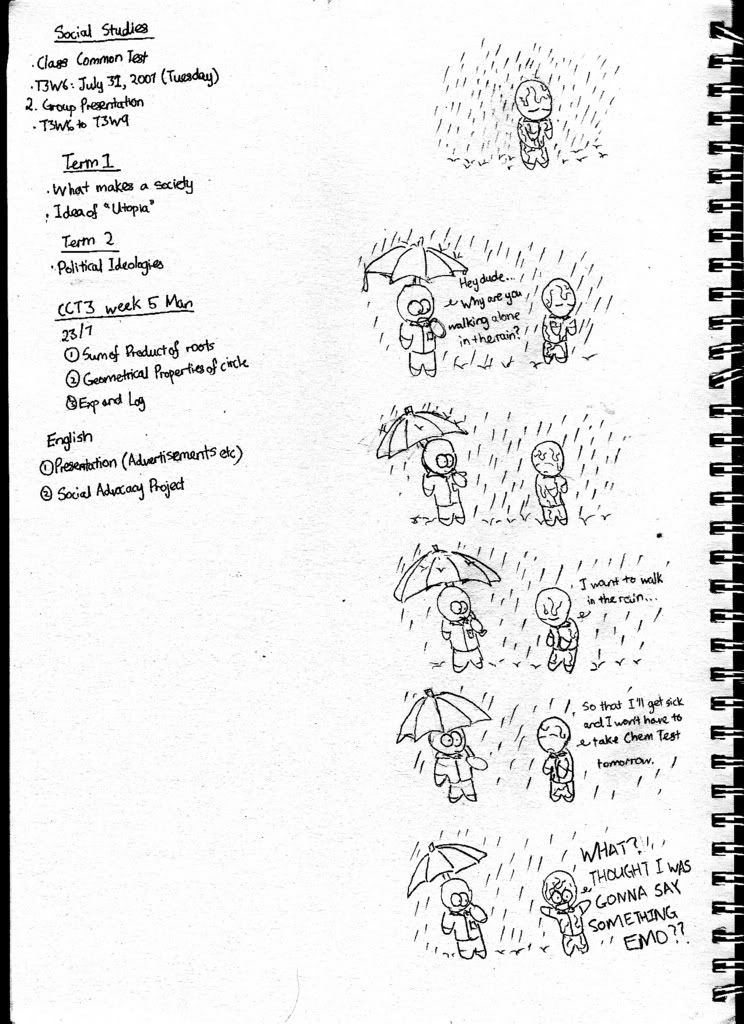 Social Studies
. Class Common Test
. T3W6: July 31, 2007 (Tuesday)
2. Group Presentation
. T3W6 to T3W9
Term 1
. What makes a society
. Idea of "Utopia"
Term 2
. Political Ideologies
CCT3 week 5 Mon
23/7
① Sum of Product of roots
② Geometrical Properties of circle
③ Exp and Log
English
① Presentation (Advertisements etc)
② Social Advocacy Project
Hey dude...
Why are you
walking alone
in the rain?
I want to walk
in the rain...
So that I'll get sick
and I won't have to
take Chem Test
tomorrow.
WHAT?
THOUGHT I WAS
GONNA SAY
SOMETHING
EMO??